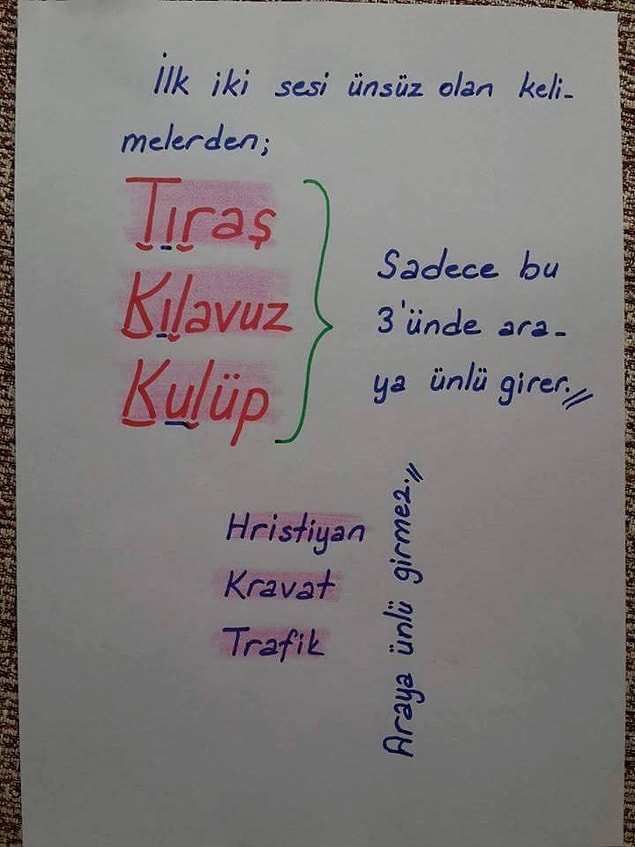 İlk iki sesi ünsüz olan keli-
melerden;
Tıraş
Kılavuz
Kulüp
Sadece bu
3'ünde ara-
ya ünlü girer.
Hristiyan
Kravat
Trafik
Araya ünlü girmez.